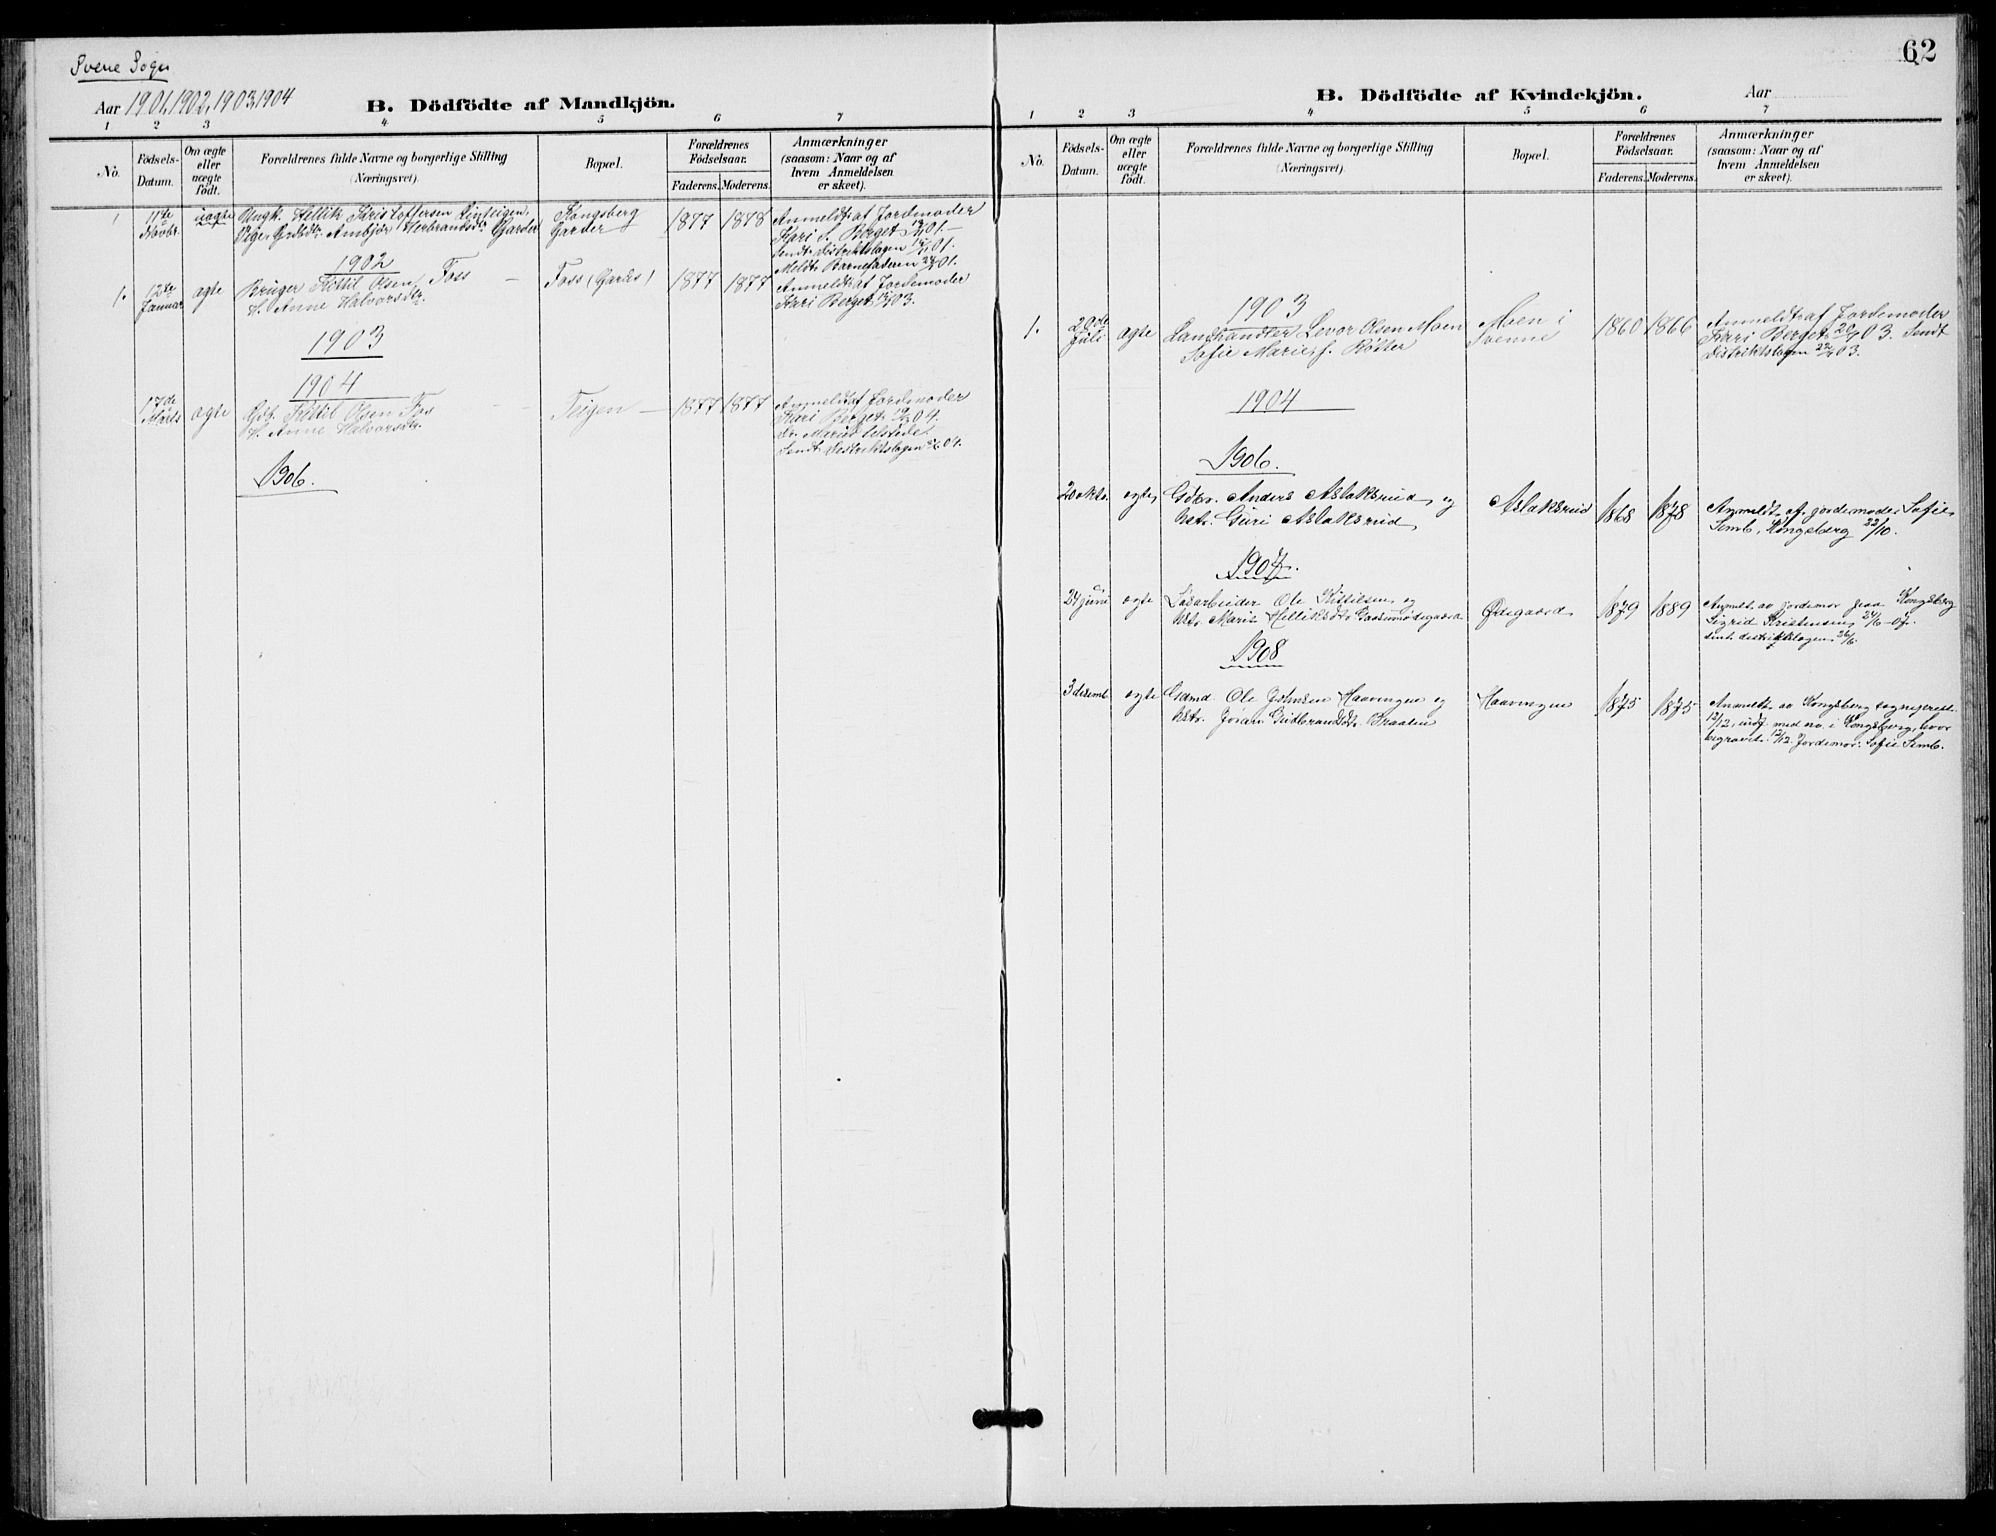 Svene Sogn
Aar 1901, 1902, 1903, 1904
B. Dödfödte af Mandkjön.
1 2 3 4 5 6 7
No.
Födsels-
Datum.
Om ægte
eller
uægte
födt.
Forældrenes fulde Navne og borgerlige Stilling
(Næringsvei).
Bopæl.
Forældrenes
Födselsaar.
Faderens. Moderens.
Anmærkninger
(saasom: Naar og af
hvem Anmeldelsen
er skeet).
1 11te Novbr. uægte Ungk. Hellik Kristoffersen
Pige, Gbrdtr. Herbrandsdtr. Garder
Kongsberg
Garder
1877 1878
Anmeldt af Jordemoder
Kari S. Berget
Sendt Distriktslægen
Meldt Barnefaderen
1902
1. 12te Januar ægte Bruger Kittil Olsen Foss
H. Anne Halvorsdtr.
Foss (Garaas)
1877 1877
Anmeldt af Jordemoder
Kari Berget
1903
1904
17de Marts ægte Gbr. Kittil Olsen Foss
H. Anne Halvorsdtr.
Teigen
1877 1877
Anmeldt af Jordemoder
Kari Berget
Sendt Distriktslægen
1906.
62
B. Dödfödte af Kvindekjön.
Aar
1 2 3 4 5 6 7
No.
Födsels-
Datum.
Om ægte
eller
uægte
födt.
Forældrenes fulde Navne og borgerlige Stilling
(Næringsvei).
Bopæl.
Forældrenes
Födselsaar.
Faderens. Moderens.
Anmærkninger
(saasom: Naar og af
hvem Anmeldelsen
er skeet).
1903
1. 20de Juli ægte Landhandler Levor Olsen Moen
Sofie Marie f.
Moen i
Svenne
1860 1866
Anmeldt af Jordemoder
Kari Berget 20/7 03. Sendt
Distriktslægen 22/7 03.
1904
1906.
20 okto. ægte Gbr. Anders Aslaksrud og
hstr. Guri Aslaksrud
Aslaksrud
1868 1878
Anmeldt af jordemoder Sofie
Semb, Kongsberg 22/10.
1907.
24 juni ægte Ole Kittilsen og
hstr. Maris Helliksdtr.
Ødegaard
1879 1889
Anmeldt av jordemor paa Kongsberg
Sigrid Kristensen 24/6-07.
sendt distriktslægen 26/6.
1908
3 desemb. ægte Gdmd. Ole Johnsen Haavingen og
hstr. Joran Gulbrandsdtr. Braaten
Haavingen
1875 1875
Anmeldt av Kongsberg sogneprest
12/12, indf. med no. i Kongsberg, hvor
begravet 12/12. Jordemor: Sofie Semb.